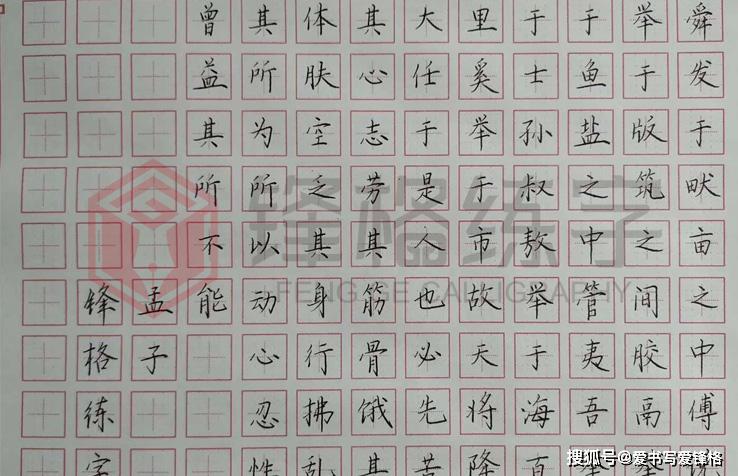 舜发于畎亩之中傅
举于版筑之间胶鬲举
于鱼盐之中管夷吾举
于士孙叔敖举于海百
里奚举于市故天将降
大任于是人也必先苦
其心志劳其筋骨饿其
体肤空乏其身行拂乱
其所为所以动心忍性
曾益其所不能
孟子
锋格练字
锋格练字
FENGGE CALLIGRAPHY
搜狐号@爱书写爱锋格